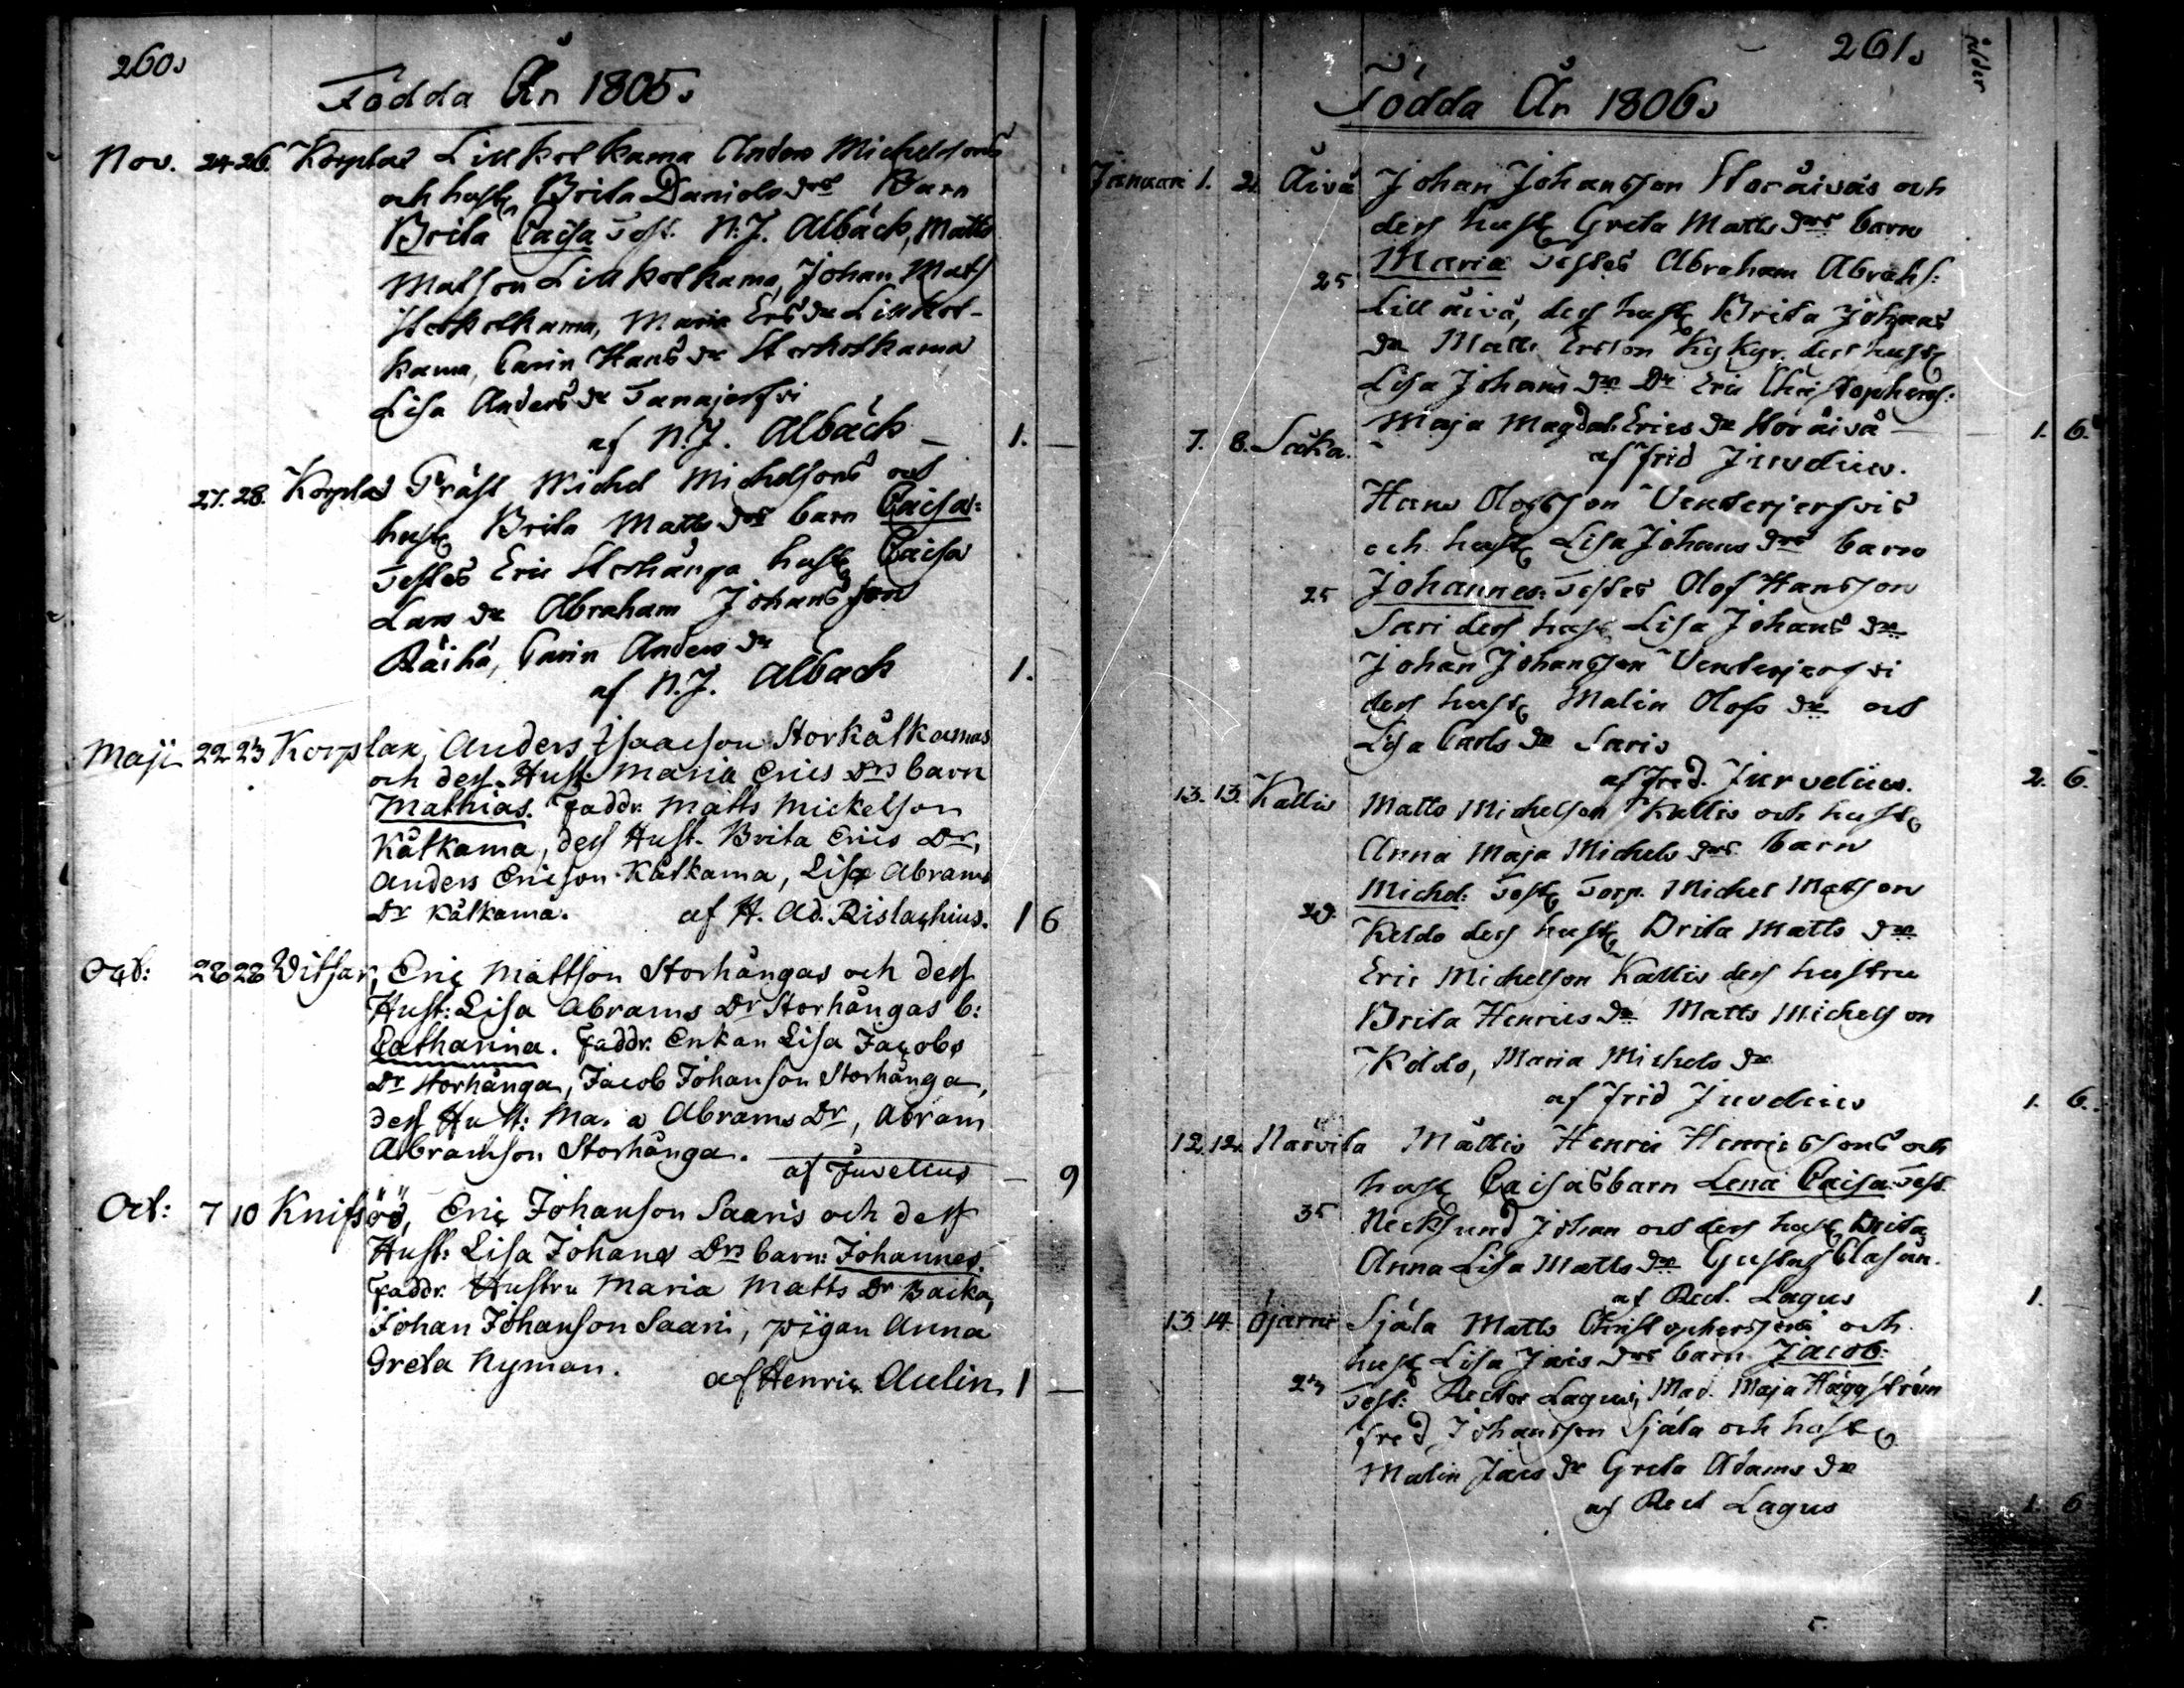 260.
Födda År 1805.
Nov. 24 26. Korplax Lillkolkama Anders Michelsons
och hust. Brita Daniels drs Barn
Brita Caisa Test. N:J. Albäck, Matts
Matson Lillkolkama, Johan Mats
Storkolkama, Maria Ers dr Lillkol-
kama, Carin Hans dr Storkolkama
Lisa Anders dr Tanajerfvi
af N.J. Albäck – 1. –
27. 28. Korplax Träsk Michel Michelsons och
hust Brita Matts drs barn Caisa:
Testes Eric Storhänga hust Caisa
Lars dr Abraham Johansson
Räihä, Carin Anders dr
af N.J. Albäck 1.
Maji 22 23 Korplax, Anders Isaacson Storkålkamas
och dess Hust. Maria Erics Drs barn
Mathias. Faddr. Matts Mickelson
Kålkama, dess Hust. Brita Erics Dr,
Anders Ericson Kålkama, Lisa Abrams
Dr Kålkama. af H. Ad. Rislachius. 1 6
Oct: 28 28 Vitsar, Eric Mattson Storhängas och dess
Hust: Lisa Abrams Dr Storhängas b:
Catharina. Faddr. Enkan Lisa Jacobs
Dr Storhänga, Jacob Johanson Storhänga,
dess Hust: Ma. a Abrams Dr, Abram
Abramson Storhänga.
af Juvelius – 9
Oct: 7 10 Knifsöö, Eric Johanson Saaris och dess
Hust: Lisa Johans Drs barn: Johannes.
Faddr. Hustru Maria Matts Dr Backa,
Johan Johanson Saari, pigan Anna
Greta Nyman.
af Henric Aulin 1 –
261.
ålder
Födda År 1806.
Januari 1. 2. Äivä Johan Johansson Storäiväs och
dess hust Greta Matts drs barn
Maria Testes Abraham Abrahs:
25
Lilläivä, dess hust Brita Johans
dr Matts Ersson Kykyr. dess hust
Lisa Johans dr Dr Eric Christophers:
Maja Magdal. Erics dr Storäivä – 1. 6.
af Frid Juvelius.
7. 8. Saka.
Hans Olofsson Venderjerfvis
och hust Lisa Johans drs barn
25 Johannes: Testes Olof Hansson
Sari dess hust Lisa Johans dr
Johan Johansson Venderjerfvi
dess hust Malin Olofs dr och
Lisa Carls dr Saris
af Fred. Jurvelius. 2. 6.
13. 13. Kallis Matts Michelson Kallis och hust
Anna Maja Michels drs barn
Michel: Test Torp. Michel Matson
29. Keldo dess hust Brita Matts dr
Eric Michelson Kallis dess hustru
Brita Henrics dr Matts Michelson
Köldo, Maria Michels dr
af Frid Juvelius 1. 6.
12. 12. Narvila Mattis Henric Henricssons och
hust Caisas barn Lena Caisa: Test.
35 Necksund Johan och dess hust Brita
Anna Lisa Matts dr Gustaf Clasén.
af Rect. Lagus 1.
13 14. Bjarnä Själa Matts Christophersons och
hust Lisa Jacs drs barn Jacob:
23 Test: Rector Lagus, Mad. Maja Häggström
Fred Johansson Själa och hust
Malin Jacs dr Greta Adams dr
af Rect Lagus 1. 6